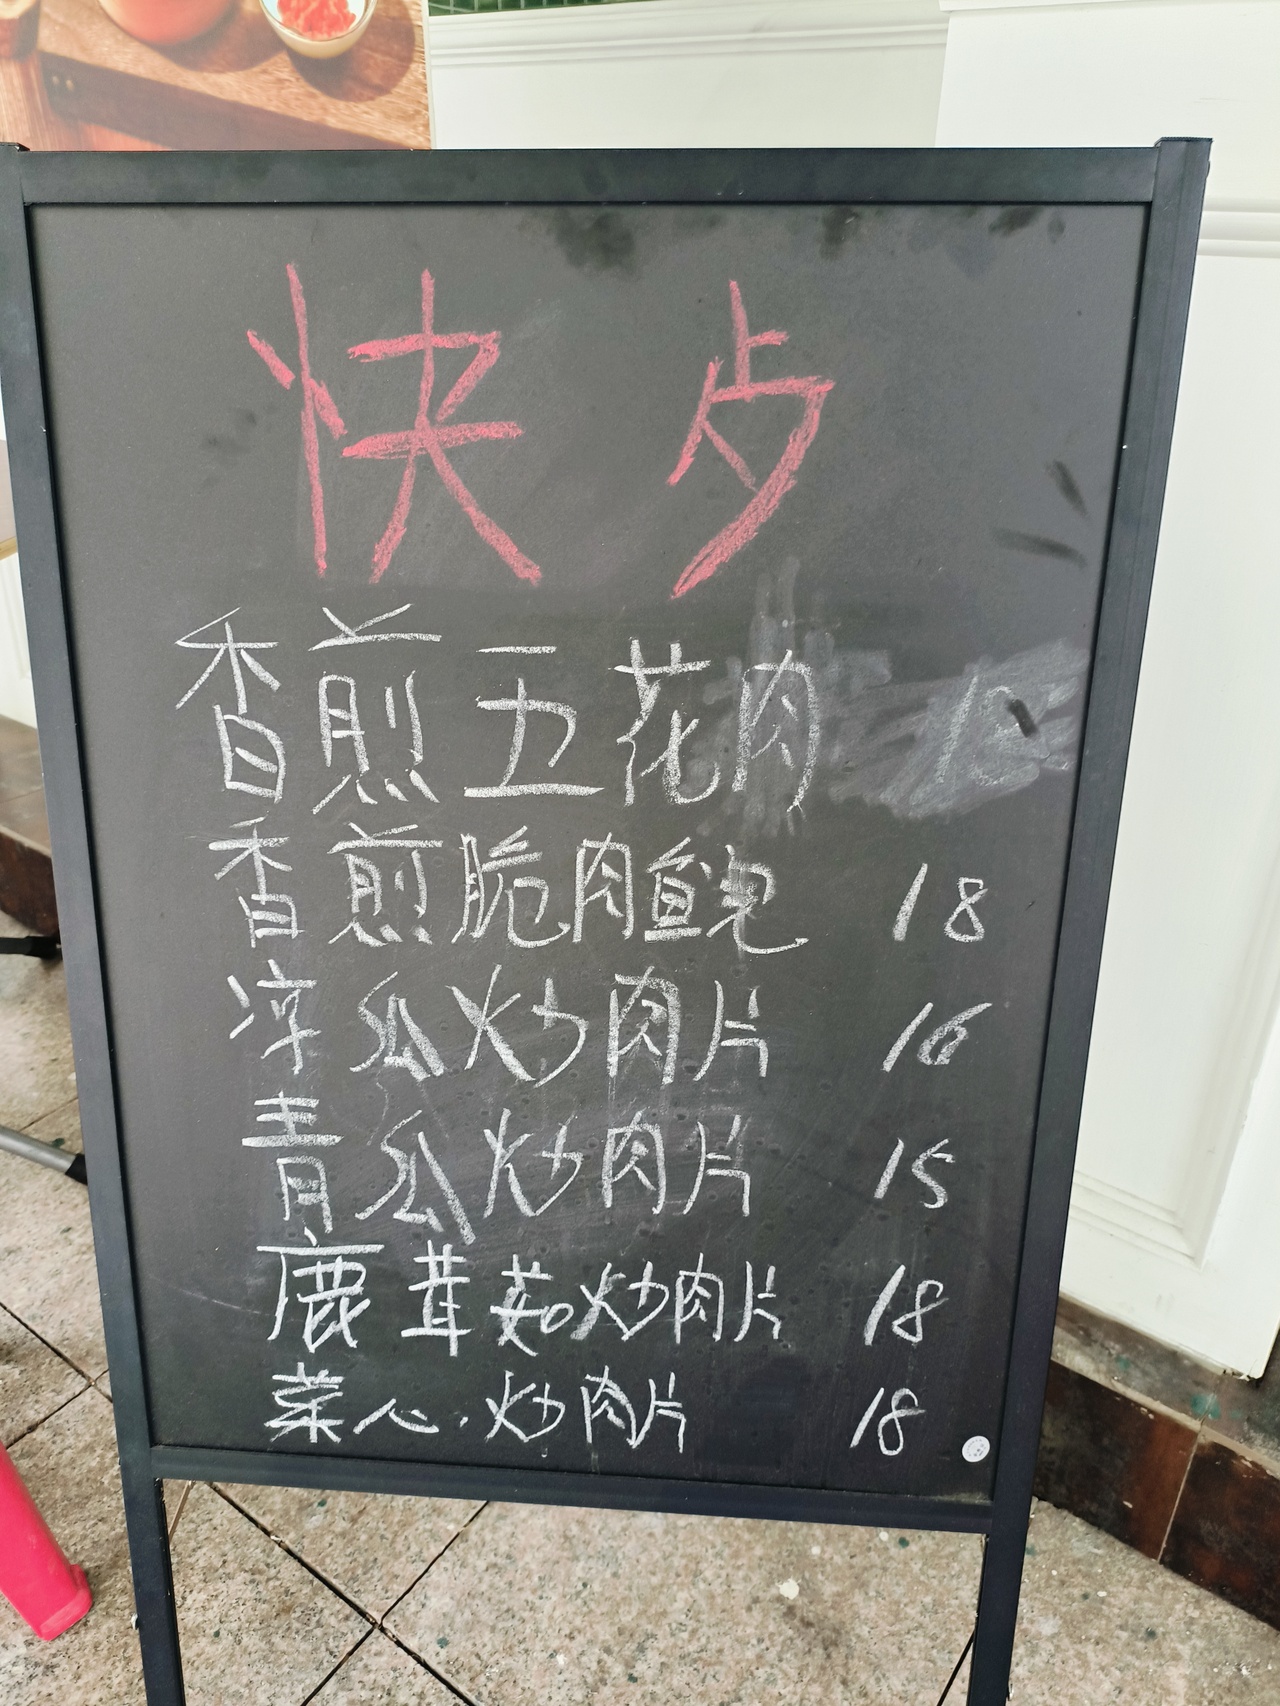 快歺
香煎五花肉
香煎脆肉鲩 18
凉瓜炒肉片 16
青瓜炒肉片 15
鹿茸菇炒肉片 18
菜心炒肉片 18